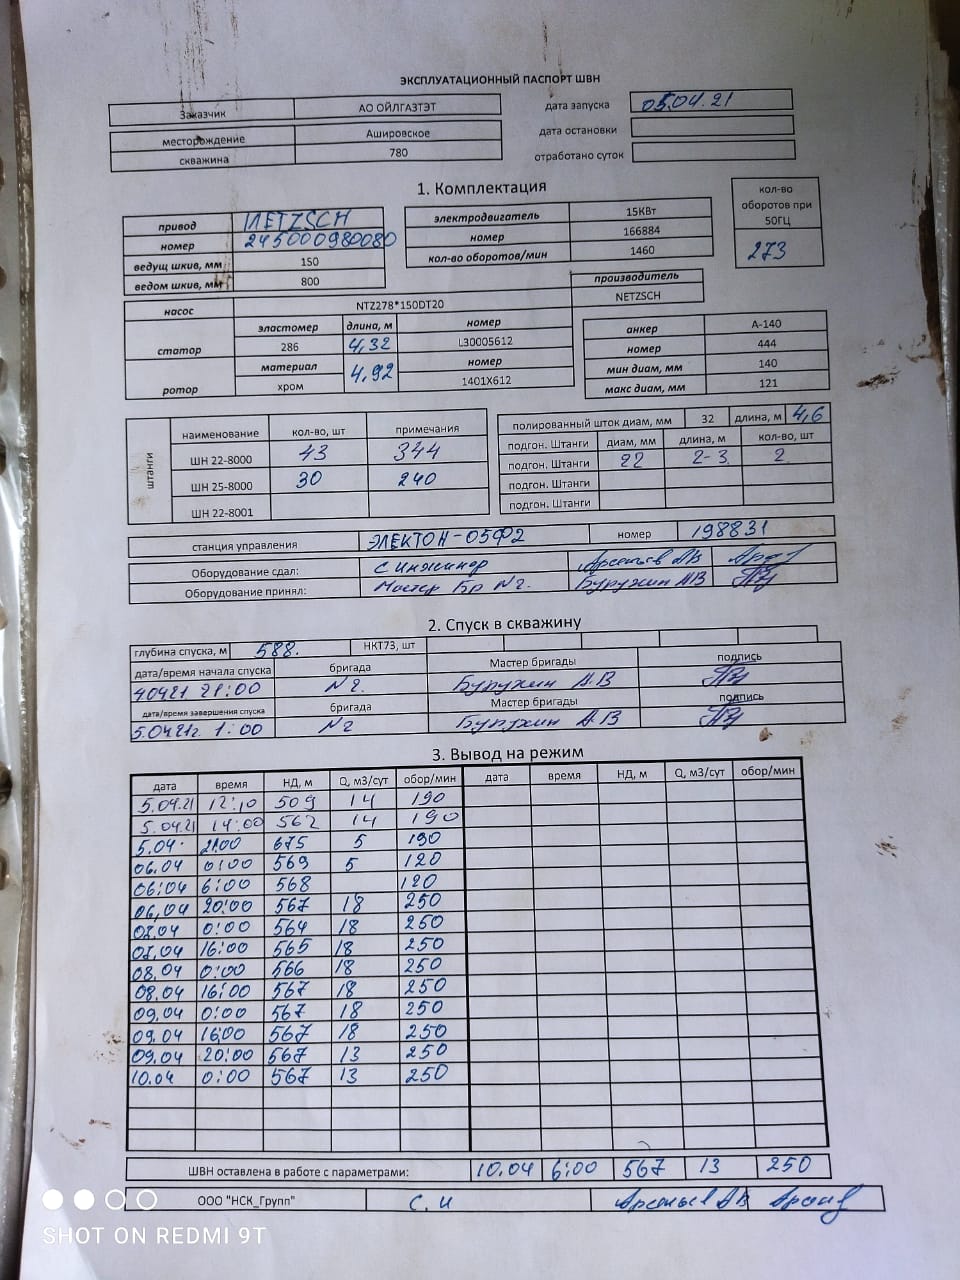 ЭКСПЛУАТАЦИОННЫЙ ПАСПОРТ ШВН
Заказчик АО ОЙЛГАЗТЭТ
дата запуска 05.04.21
месторождение Ашировское
дата остановки
скважина 780
отработано суток
1. Комплектация
кол-во оборотов при 50ГЦ
273
привод NETZSCH
номер 245000980080
ведущ шкив, мм 150
ведом шкив, мм 800
электродвигатель 15КВт
номер 166884
кол-во оборотов/мин 1460
насос NTZ278*150DT20
производитель
NETZSCH
статор
эластомер длина, м номер
286 4,32 L30005612
ротор
материал номер
хром 4,92 1401X612
анкер А-140
номер 444
мин диам, мм 140
макс диам, мм 121
штанги
наименование кол-во, шт примечания
ШН 22-8000 43 344
ШН 25-8000 30 240
ШН 22-8001
полированный шток диам, мм 32 длина, м 4,6
подгон. Штанги диам, мм длина, м кол-во, шт
подгон. Штанги 22 2-3 2
подгон. Штанги
подгон. Штанги
станция управления ЭЛЕКТОН-05Ф2 номер 198831
Оборудование сдал: С.Инженер Арсентьев АВ
Оборудование принял: Мастер Бр №2. Бурухин АВ
2. Спуск в скважину
глубина спуска, м 588. НКТ73, шт
дата/время начала спуска бригада Мастер бригады подпись
40421 21:00 №2. Бурухин А.В
дата/время завершения спуска бригада Мастер бригады подпись
5.0421г. 1:00 №2 Бурухин А.В
3. Вывод на режим
дата время НД, м Q, м3/сут обор/мин дата время НД, м Q, м3/сут обор/мин
5.04.21 12:10 509 14 190
5.04.21 14:00 562 14 190
5.04. 21:00 675 5 190
06.04 0:00 569 5 120
06:04 6:00 568 120
06,04 20:00 567 18 250
08.04 0:00 564 18 250
08,04 16:00 565 18 250
08.04 0:00 566 18 250
08.04 16:00 567 18 250
09.04 0:00 567 18 250
09.04 16:00 567 18 250
09.04 20:00 567 13 250
10.04 0:00 567 13 250
ШВН оставлена в работе с параметрами: 10.04 6:00 567 13 250
ООО "НСК_Групп" С.И Арсентьев АВ
SHOT ON REDMI 9T